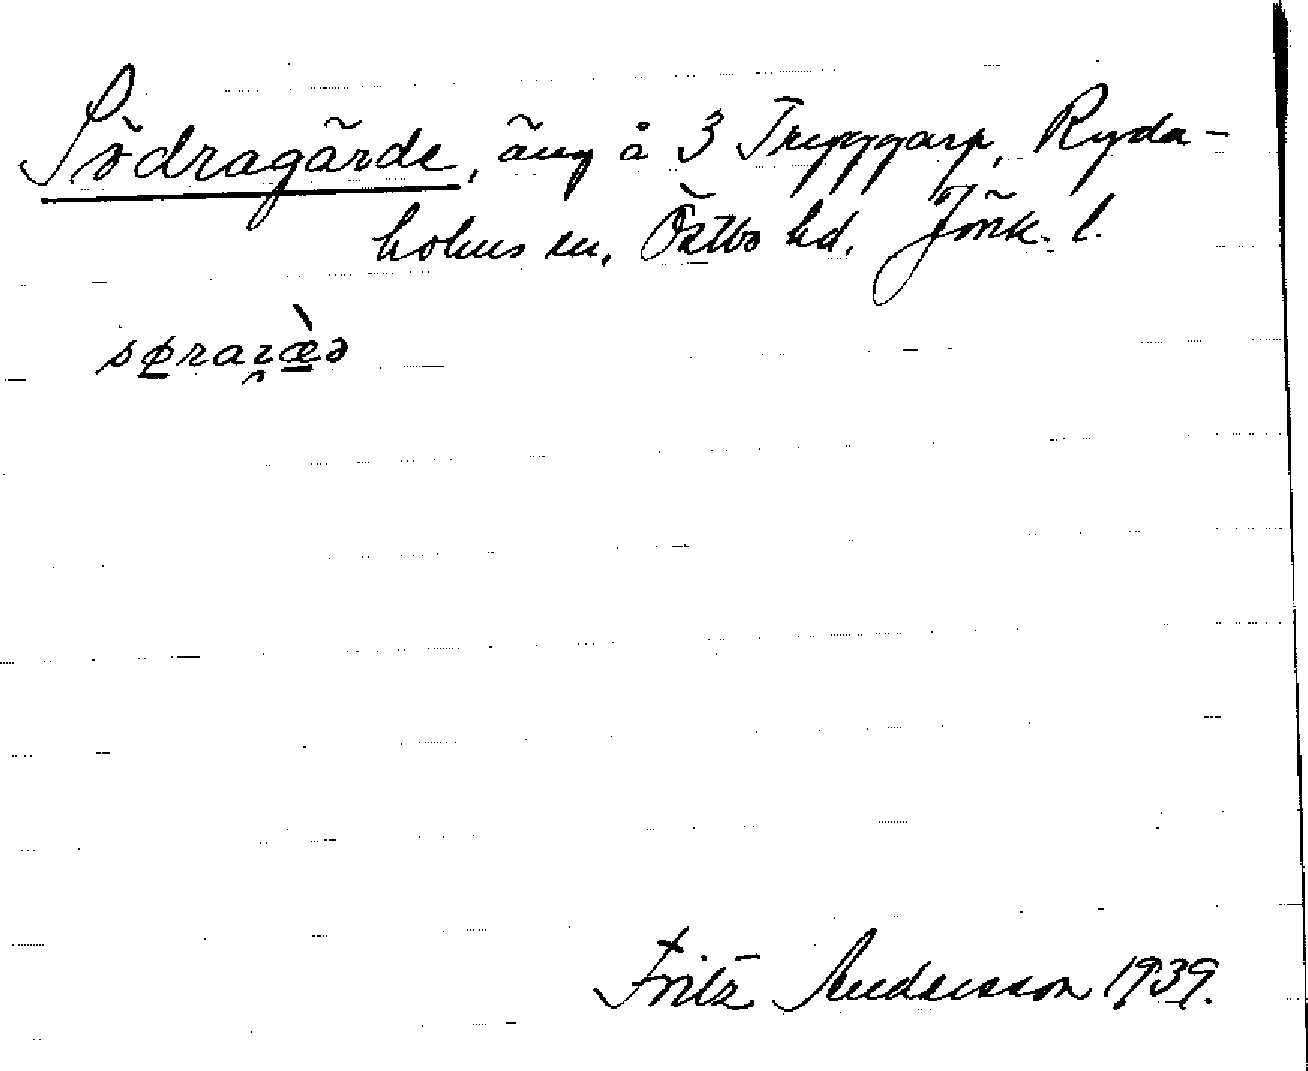 Södragärde, äng å 3 Tryggarp, Ryda-
holms sn, Östbo hd. Jönk. l.
Fritz Andersson 1939.